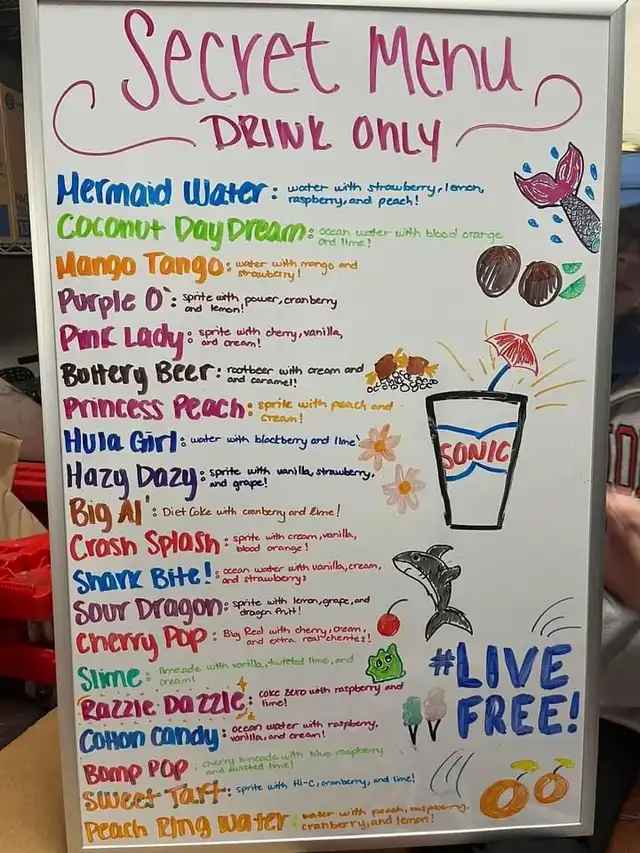 Secret Menu
DRINK ONLY
Mermaid Water: water with strawberry, lemon,
raspberry, and peach!
Coconut DayDream: ocean water with blood orange
and lime!
Mango Tango: water with mango and
strawberry!
Purple O': sprite with power, cranberry
and lemon!
Pink Lady: sprite with cherry, vanilla,
and cream!
Buttery Beer: rootbeer with cream and
and caramel!
Princess Peach: sprite with peach and
cream!
Hula Girl: water with blackberry and lime
Hazy Dazy: sprite with vanilla, strawberry,
and grape!
Big Al': Diet Coke with cranberry and lime!
Crash Splash: sprite with cream, vanilla,
blood orange!
Shark Bite!: ocean water with vanilla, cream,
and strawberry!
Sour Dragon: sprite with lemon, grape, and
dragon fruit!
Cherry Pop: Big Red with cherry, cream,
and extra real cherries!
Slime: limeade with vanilla, twisted lime, and
cream!
Razzle Dazzle: coke zero with raspberry and
lime!
Cotton Candy: ocean water with raspberry,
vanilla, and cream!
Bomp POP: cherry limeade with blue raspberry
and twisted lime!
Sweet Tart: sprite with HI-C, cranberry, and lime!
Peach Ring Water: water with peach, raspberry,
cranberry, and lemon!
SONIC
#LIVE
FREE!